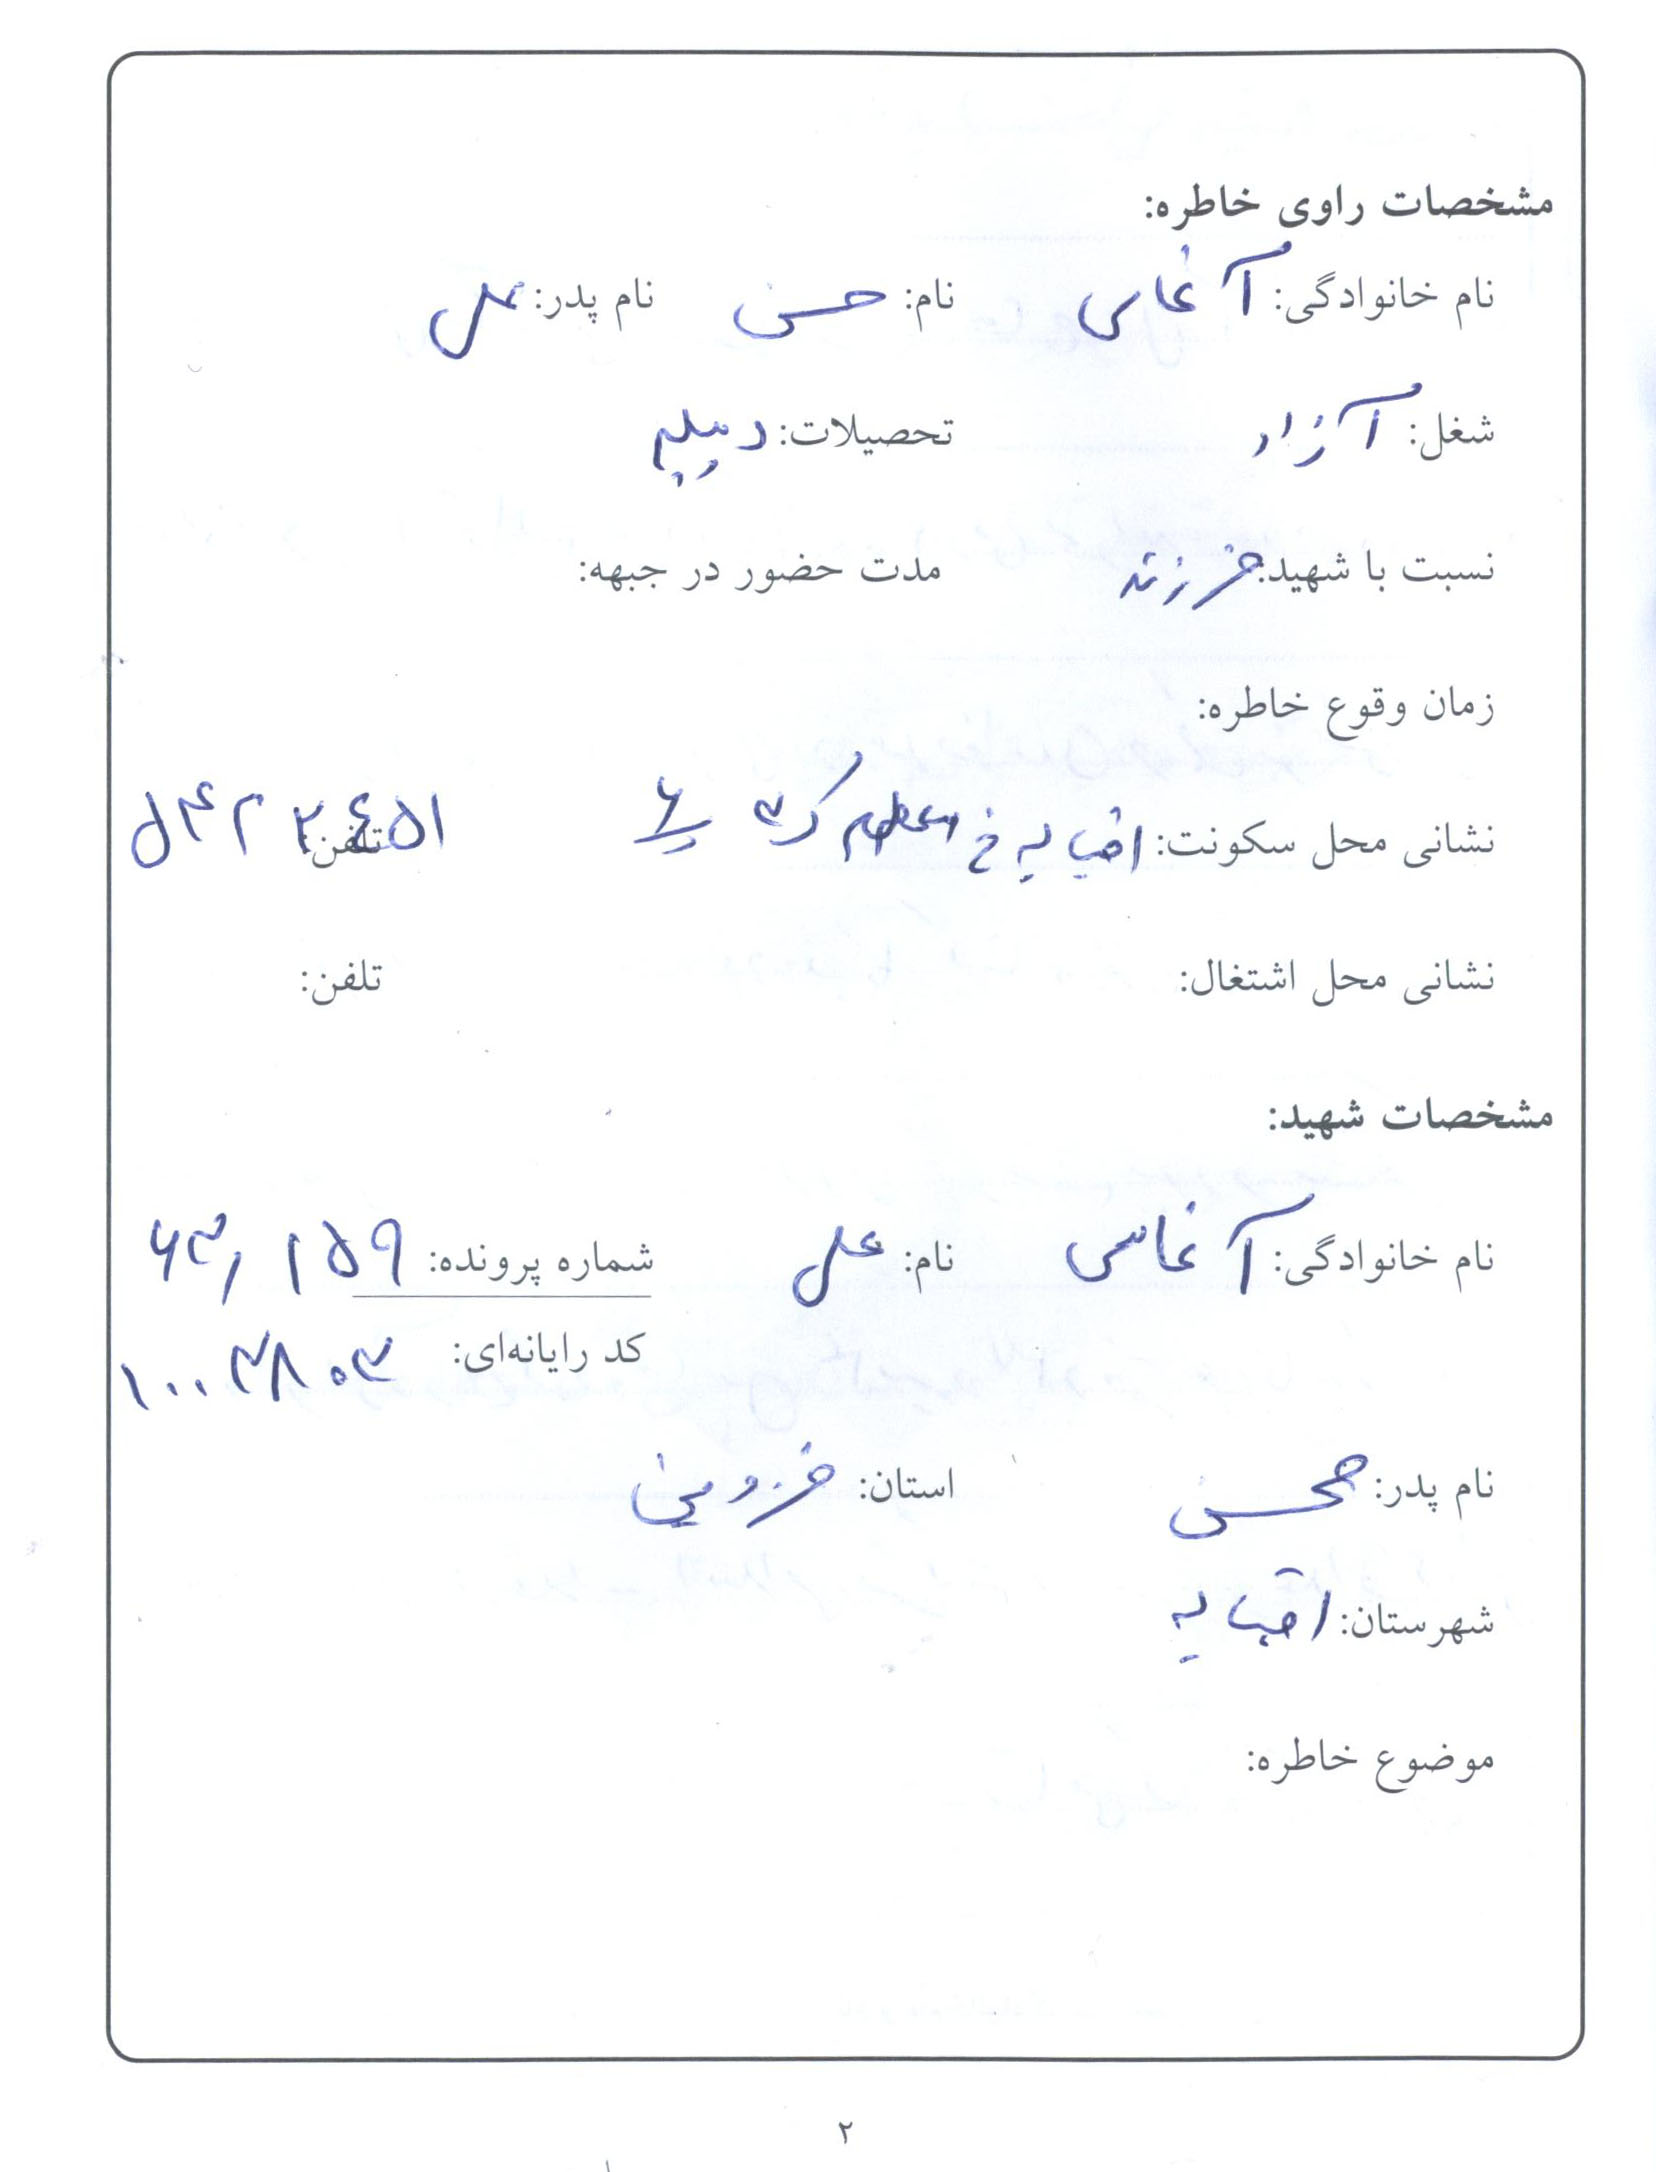 مشخصات راوی خاطره:
نام خانوادگی: آغاسی نام: حسن نام پدر: علی
شغل: آزاد تحصیلات: دیپلم
نسبت با شهید: فرزند مدت حضور در جبهه:
زمان وقوع خاطره:
نشانی محل سکونت: اقبالیه خ تلفن:
نشانی محل اشتغال: تلفن:
مشخصات شهید:
نام خانوادگی: آغاسی نام: علی شماره پرونده: ۶۳/۱۵۹
کد رایانه‌ای: ۱۰۰۳۸۰۳
نام پدر: محسن استان: قزوین
شهرستان: اقبالیه
موضوع خاطره:
۲